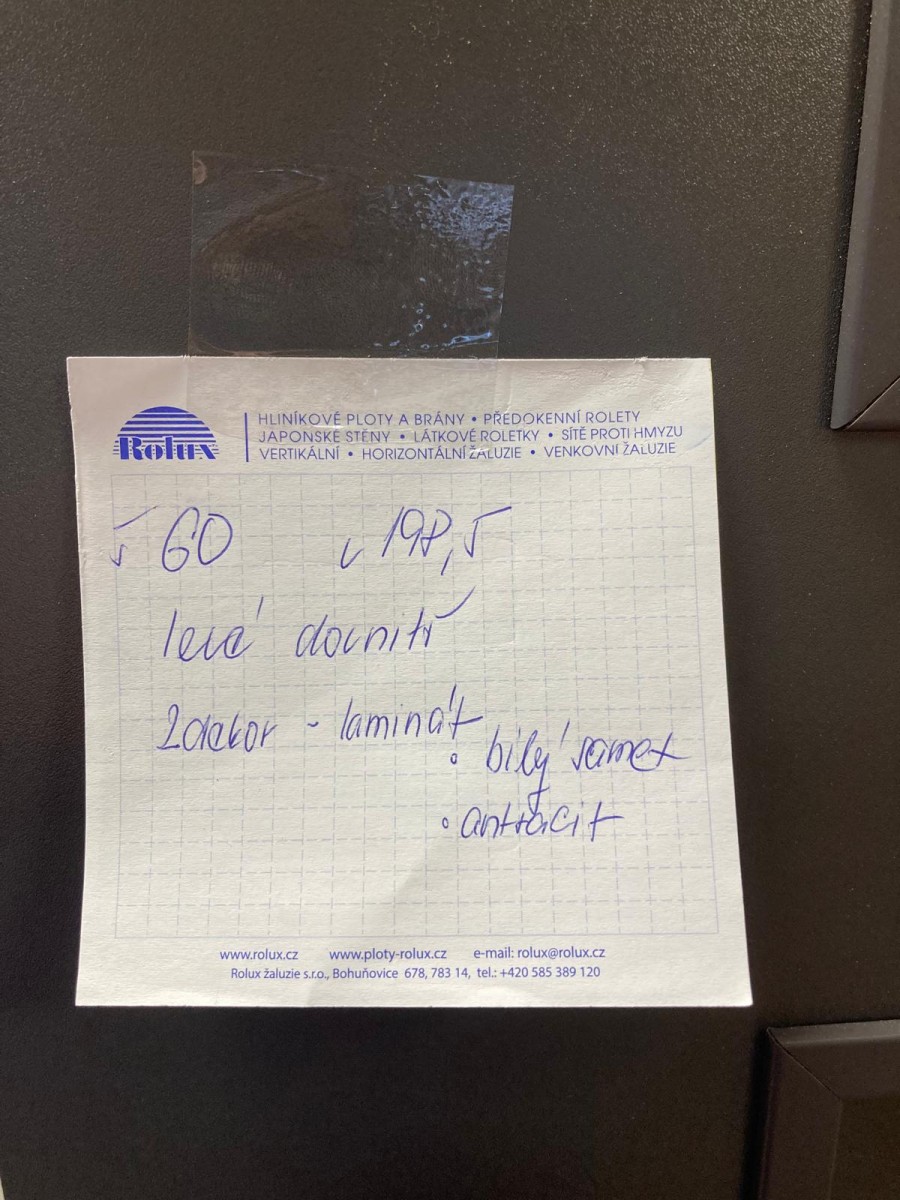 Rolux
HLINÍKOVÉ PLOTY A BRÁNY • PŘEDOKENNÍ ROLETY
JAPONSKÉ STĚNY • LÁTKOVÉ ROLETKY • SÍTĚ PROTI HMYZU
VERTIKÁLNÍ • HORIZONTÁLNÍ ŽALUZIE • VENKOVNÍ ŽALUZIE
š 60 v 198,5
levá dovnitř
2dekor - laminát
° bílý samet
° antracit
www.rolux.cz www.ploty-rolux.cz e-mail: rolux@rolux.cz
Rolux žaluzie s.r.o., Bohuňovice 678, 783 14, tel.: +420 585 389 120